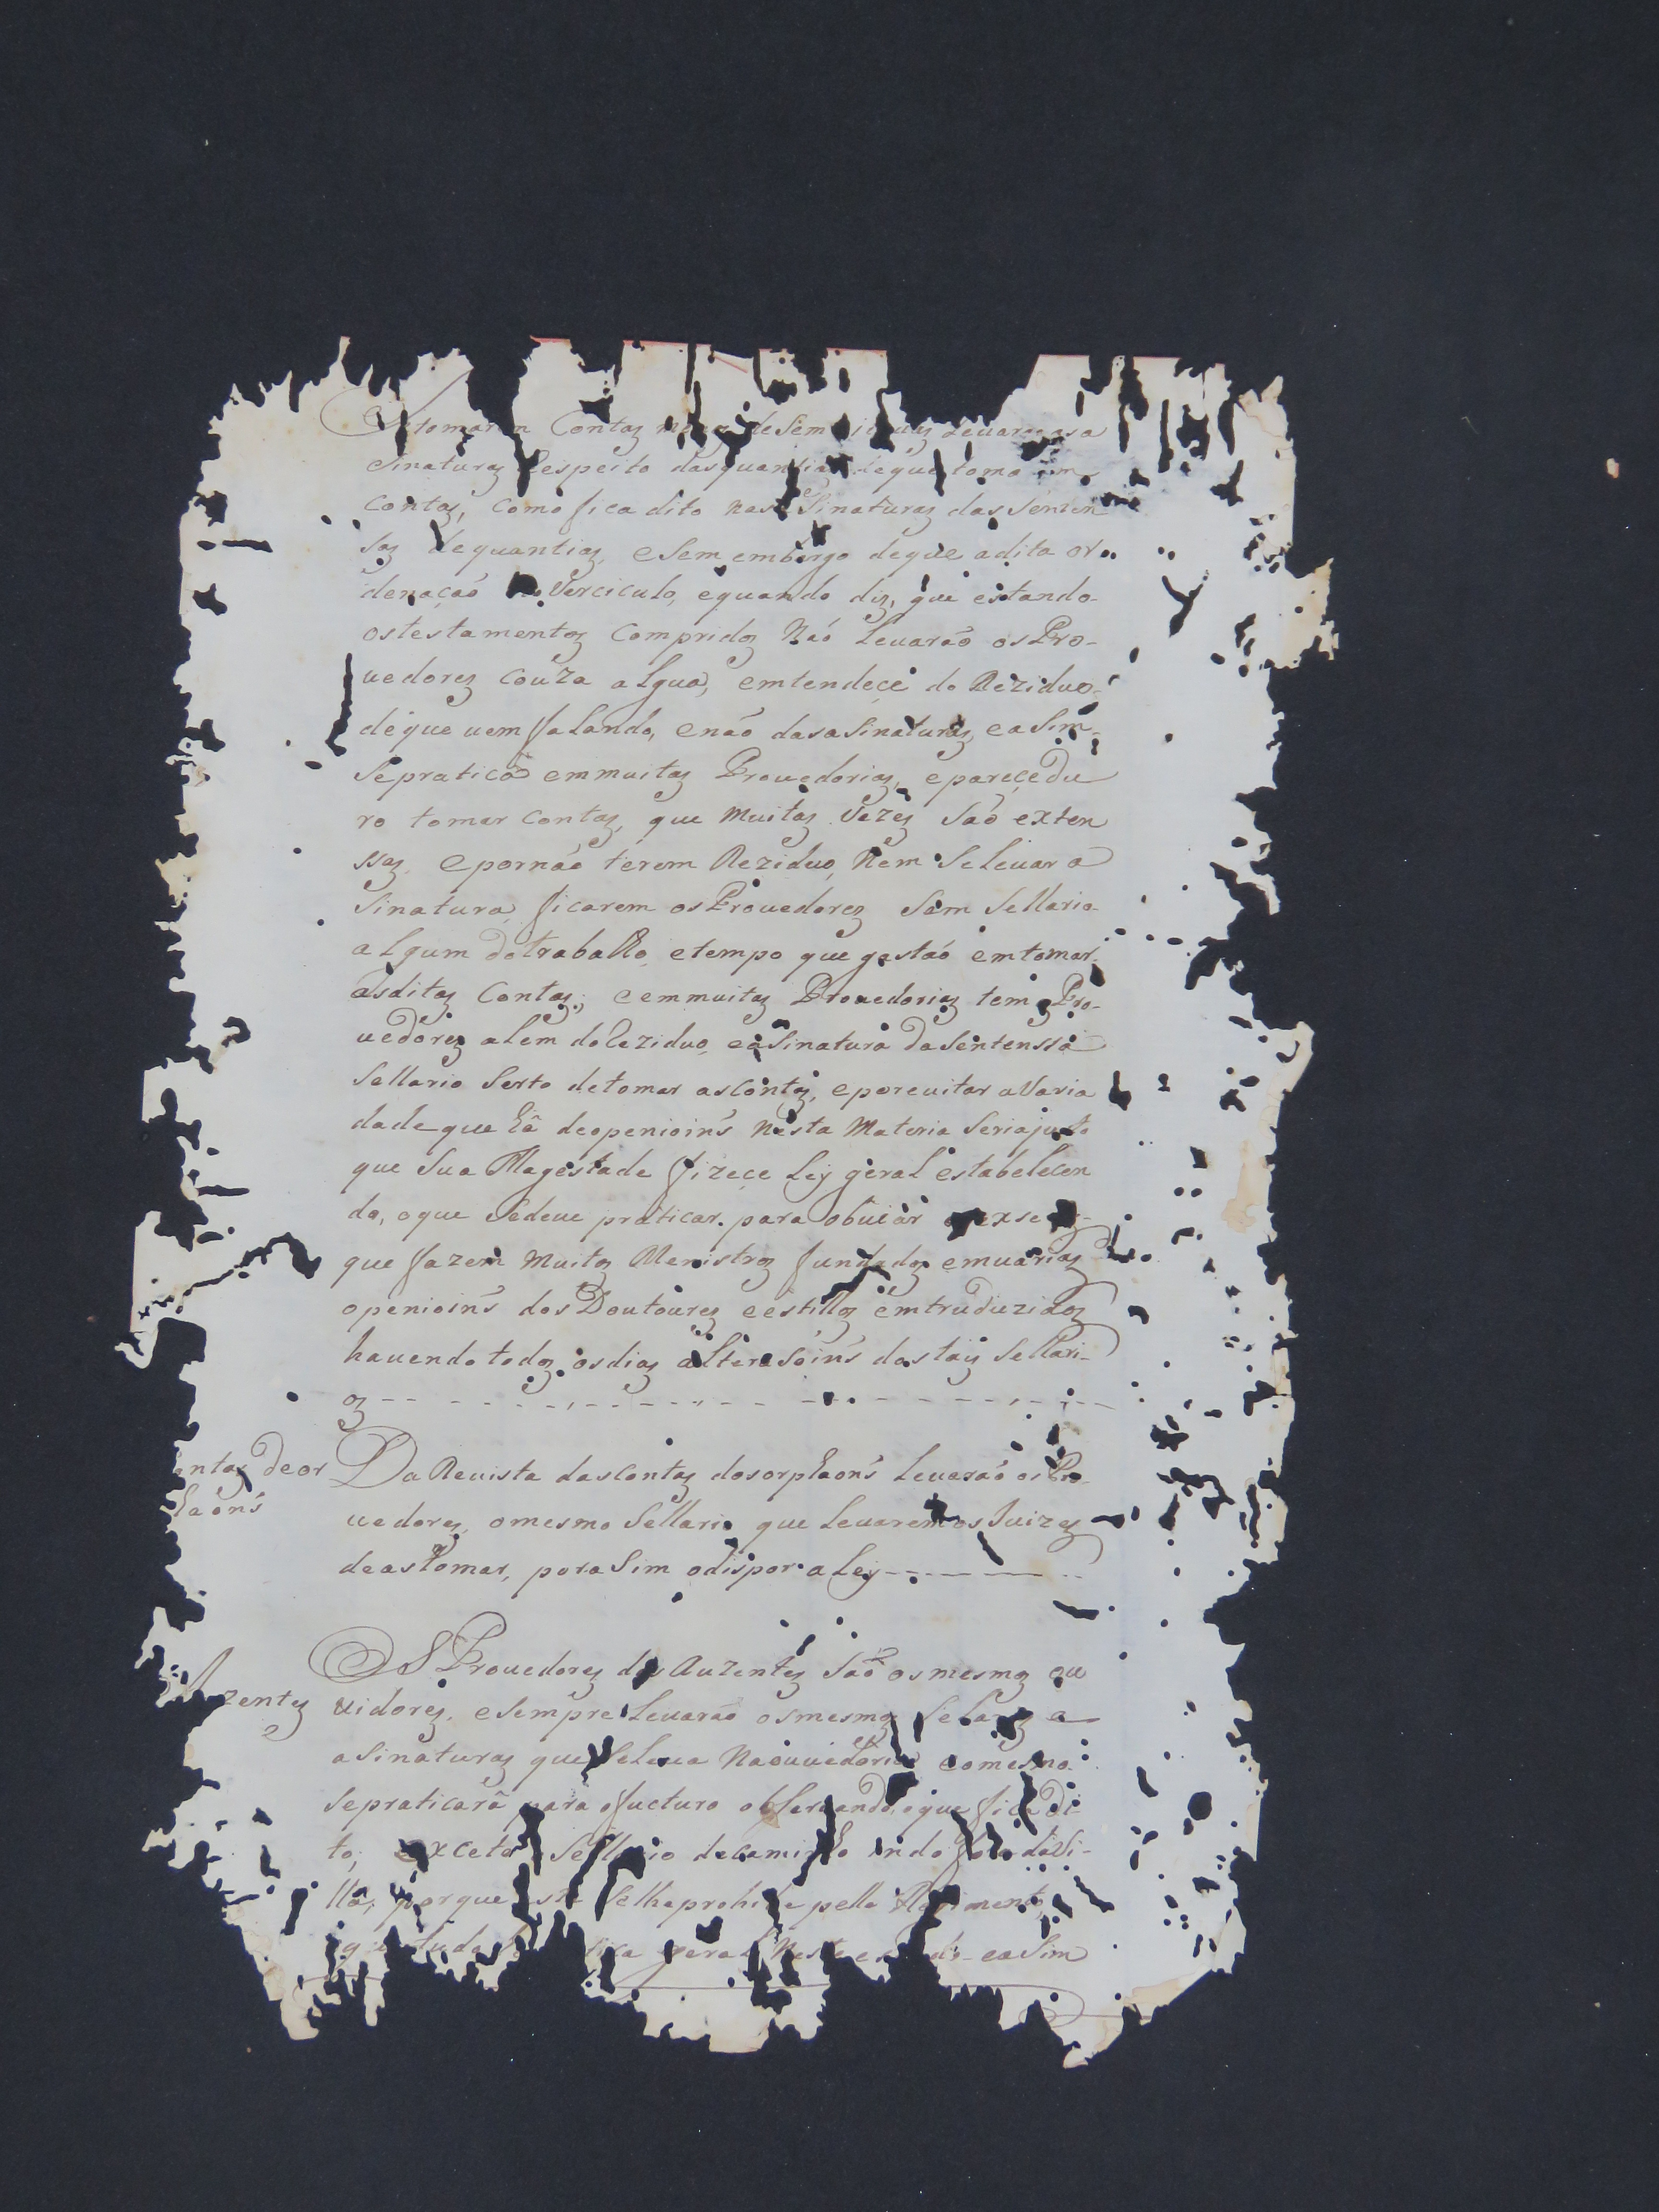 tomarem Contas levarem asa
sinaturas Respeito dasquantias deque tomarem
contas, como fica dito nas asinaturas das senten
sas dequantias, esem embargo deque adita or
denação no Verciculo, equando dis, que estando
ostestamentos Compridos Não Levarão osPro-
uedores Couza alguã, emtendece do Reziduo-
deque uem falando, enão dasasinaturas, easim-
sepraticã emmuitas Prouedorias, epareçe du
ro tomar contas, que muitas vezes são exten
ssas, epornão terem Reziduo, Nem seleuar a
sinatura, ficarem osProuedores sem sellario
algum dotrabalho, etempo que gastão emtomar
asditas Contas; eemmuitas Prouedorias tem Pro-
uedores alem doReziduo, easinatura dasentenssa
sellario serto detomar ascontas, eporeuitar aVaria
dade que hâ deopenioins nesta materia seriajusto
que sua Magestade fizeçe Ley geral estabelecen
do, oque sedeue praticar, para obuiar
que fazem muitos Menistros fundados emuarias
openioins dos Doutoures eestillos emtruduzidos
hauendo todos osdias alterasoins dastais sellari-
os
antas deor
haons
Da Reuista dascontas dosorphaons Leuarão osPro-
uedores, omesmo sellario que Leuarem os Juizes
deastomar, porasim odispor a Ley
zentes
OS Prouedores dos Auzentes são osmesmos ou
uidores, esempre Leuarão osmesmos selarios a
asinaturas que seleua Naouuedoria eomesmo
sepraticarâ para ofucturo obseruando, oque fica di-
to, exceto sellario decaminho indo fora daVi-
lla, porque este selheprohibe pello Regimento
geral neste easim